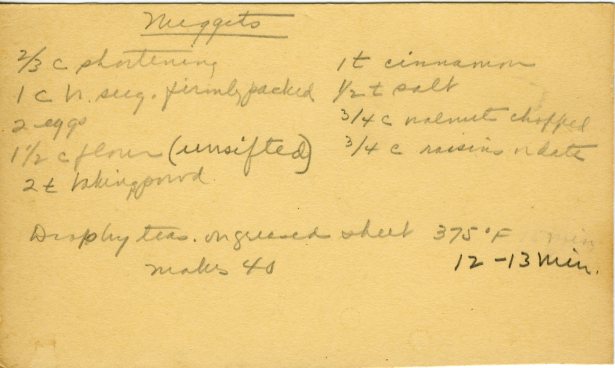 Nuggets
2/3 c shortening
1 c br. sug. firmly packed
2 eggs
1 1/2 c flour (unsifted)
2 t baking powd
1 t cinnamon
1/2 t salt
3/4 c walnut chopped
3/4 c raisins or date
Drop by teas. on greased sheet 375°F min
12-13 min.
makes 40